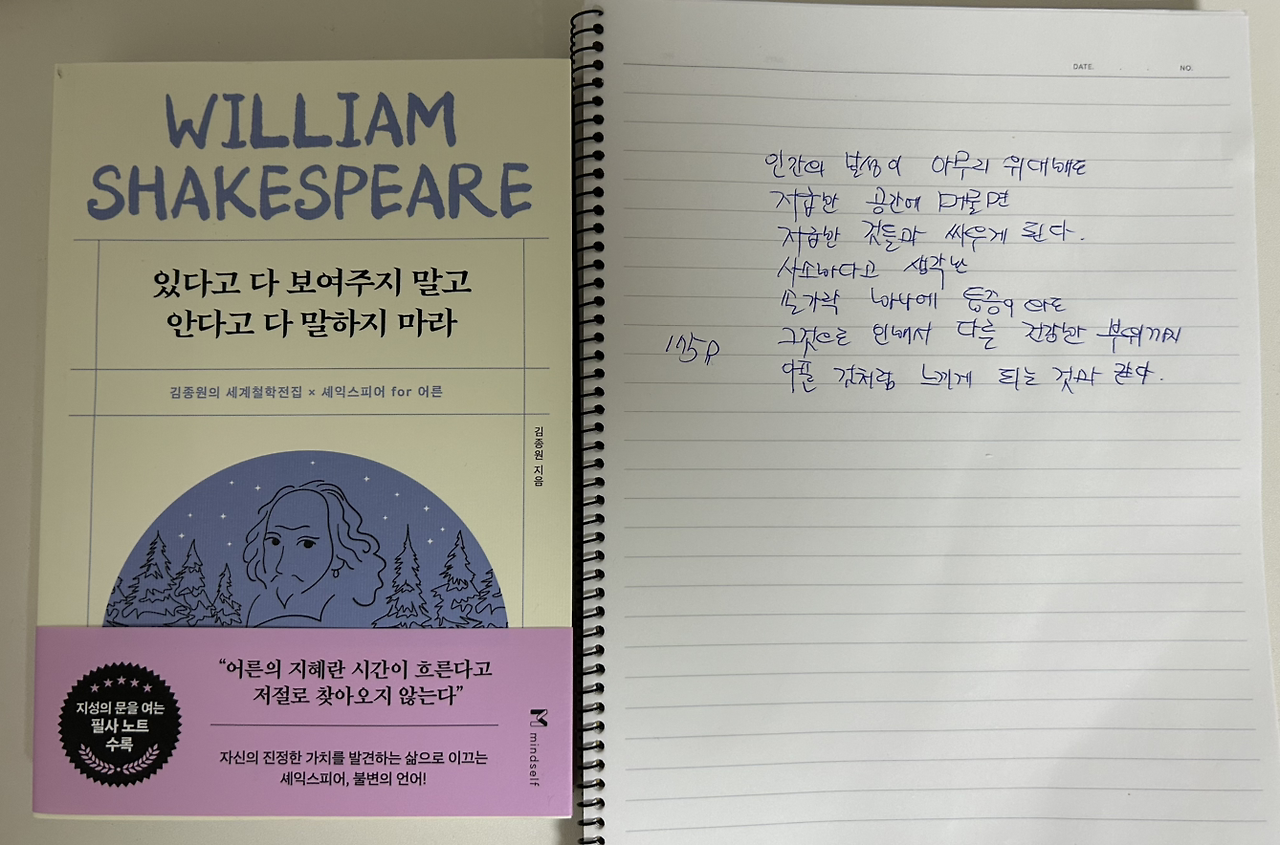 WILLIAM
SHAKESPEARE
있다고 다 보여주지 말고
안다고 다 말하지 마라
김종원의 세계철학전집 × 셰익스피어 for 어른
김종원 지음
“어른의 지혜란 시간이 흐른다고
저절로 찾아오지 않는다”
지성의 문을 여는
필사 노트
수록
자신의 진정한 가치를 발견하는 삶으로 이끄는
셰익스피어, 불변의 언어!
mindself
DATE. . . NO.
인간의 본성이 아무리 위대해도
저급한 공간에 머물면
저급한 것들과 싸우게 된다.
사소하다고 생각한
손가락 하나에 통증이 와도
그것으로 인해서 다른 건강한 부위까지
아플 것처럼 느끼게 되는 것과 같다.